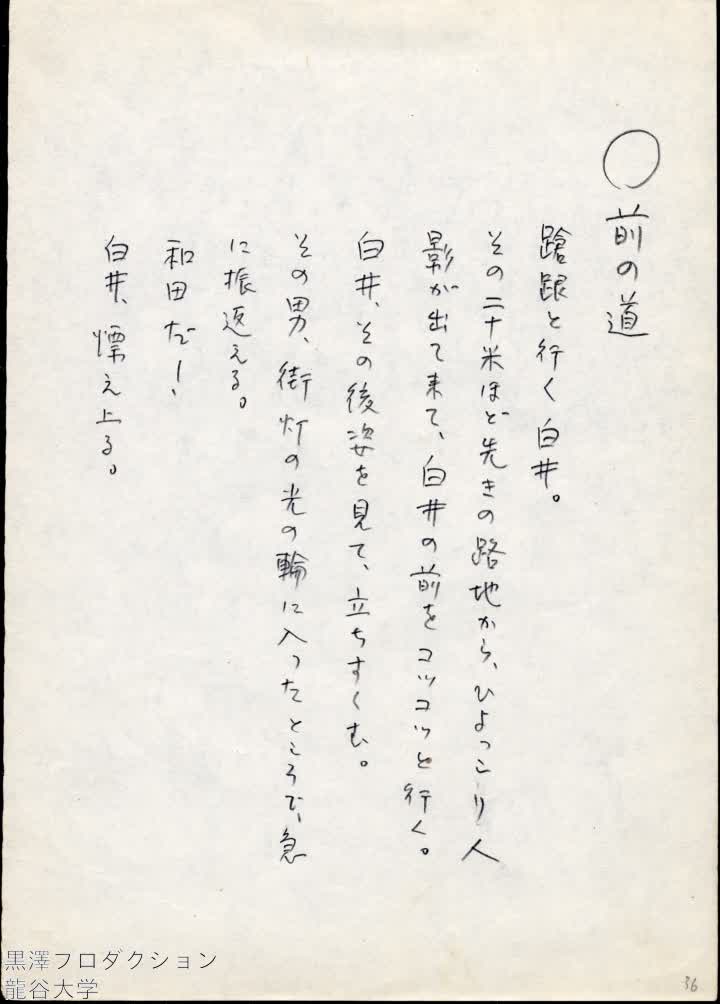 ○前の道
蹌踉と行く白井。
その二十米ほど先きの路地から、ひよっこり人
影が出て来て、白井の前をコツコツと行く。
白井、その後姿を見て、立ちすくむ。
その男、街灯の光の輪に入ったところで、急
に振返える。
和田だ！
白井、慄え上る。
36
黒澤プロダクション
龍谷大学